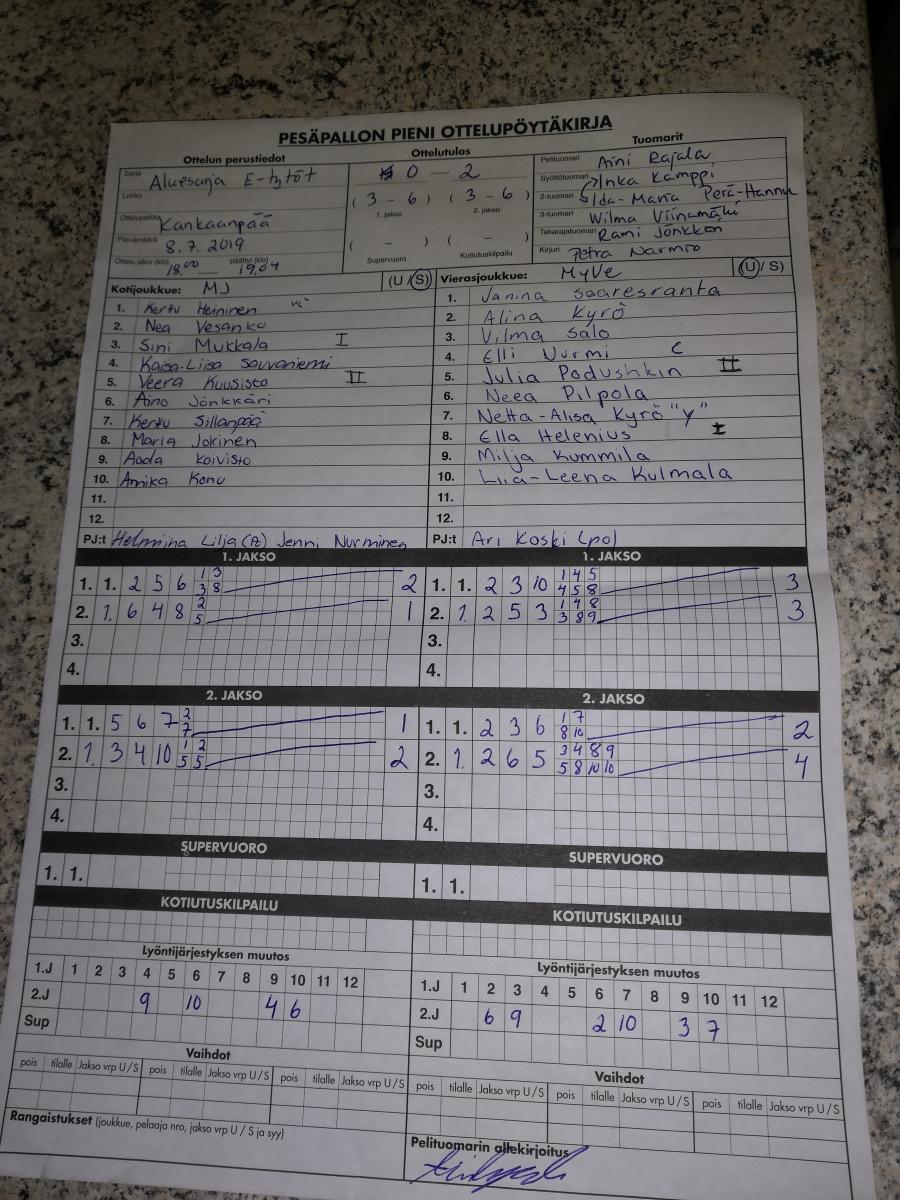 PESÄPALLON PIENI OTTELUPÖYTÄKIRJA
Ottelun perustiedot
Sarja Aluesarja E-tytöt
Lohko
Ottelupaikka Kankaanpää
Päivämäärä 8.7.2019
Ottelu alkoi (klo) 18.00 päättyi (klo) 19.04
Ottelutulos
0 - 2
( 3 - 6 ) ( 3 - 6 )
1. jakso 2. jakso
( - ) ( - )
Supervuoro Kotiutuskilpailu
Tuomarit
Pelituomari Aini Rajala
Syöttötuomari Inka Kamppi
2-tuomari Ida-Maria Perä-Hannu
3-tuomari Wilma Viinamäki
Takarajatuomari Rami Jönkkäri
Kirjuri Petra Narmio
Kotijoukkue: MJ (U / S)
1. Kerttu Heininen "C"
2. Nea Vesanko
3. Sini Mukkala I
4. Kaisa-Liisa Savvaniemi
5. Veera Kuusisto II
6. Aino Jönkkäri
7. Kerttu Sillanpää
8. Maria Jokinen
9. Aada Koivisto
10. Annika Konu
11.
12.
PJ:t Helmina Lilja (A) Jenni Nurminen
Vierasjoukkue: MyVe (U / S)
1. Janina Saaresranta
2. Alina Kyrö
3. Vilma Salo
4. Elli Nurmi C
5. Julia Padushkin II
6. Neea Pilpola
7. Netta-Alisa Kyrö "Y"
8. Ella Helenius I
9. Milja Kummila
10. Liia-Leena Kulmala
11.
12.
PJ:t Ari Koski (po)
1. JAKSO
1. 1. 2 5 6 1 3 2
3 8
2. 1. 6 4 8 2 1
5
3.
4.
1. JAKSO
1. 1. 2 3 10 1 4 5 3
4 5 8
2. 1. 2 5 3 1 4 8 3
3 8 9
3.
4.
2. JAKSO
1. 1. 5 6 7 2 1
7
2. 1. 3 4 10 1 2 2
5 5
3.
4.
2. JAKSO
1. 1. 2 3 6 1 7 2
8 10
2. 1. 2 6 5 3 4 8 9 4
5 8 10 10
3.
4.
SUPERVUORO
1. 1.
SUPERVUORO
1. 1.
KOTIUTUSKILPAILU
KOTIUTUSKILPAILU
Lyöntijärjestyksen muutos
1.J 1 2 3 4 5 6 7 8 9 10 11 12
2.J 9 10 4 6
Sup
Lyöntijärjestyksen muutos
1.J 1 2 3 4 5 6 7 8 9 10 11 12
2.J 6 9 2 10 3 7
Sup
Vaihdot
pois tilalle Jakso vrp U / S pois tilalle Jakso vrp U / S pois tilalle Jakso vrp U / S
Vaihdot
pois tilalle Jakso vrp U / S pois tilalle Jakso vrp U / S pois tilalle Jakso vrp U / S
Rangaistukset (joukkue, pelaaja nro, jakso vrp U / S ja syy)
Pelituomarin allekirjoitus